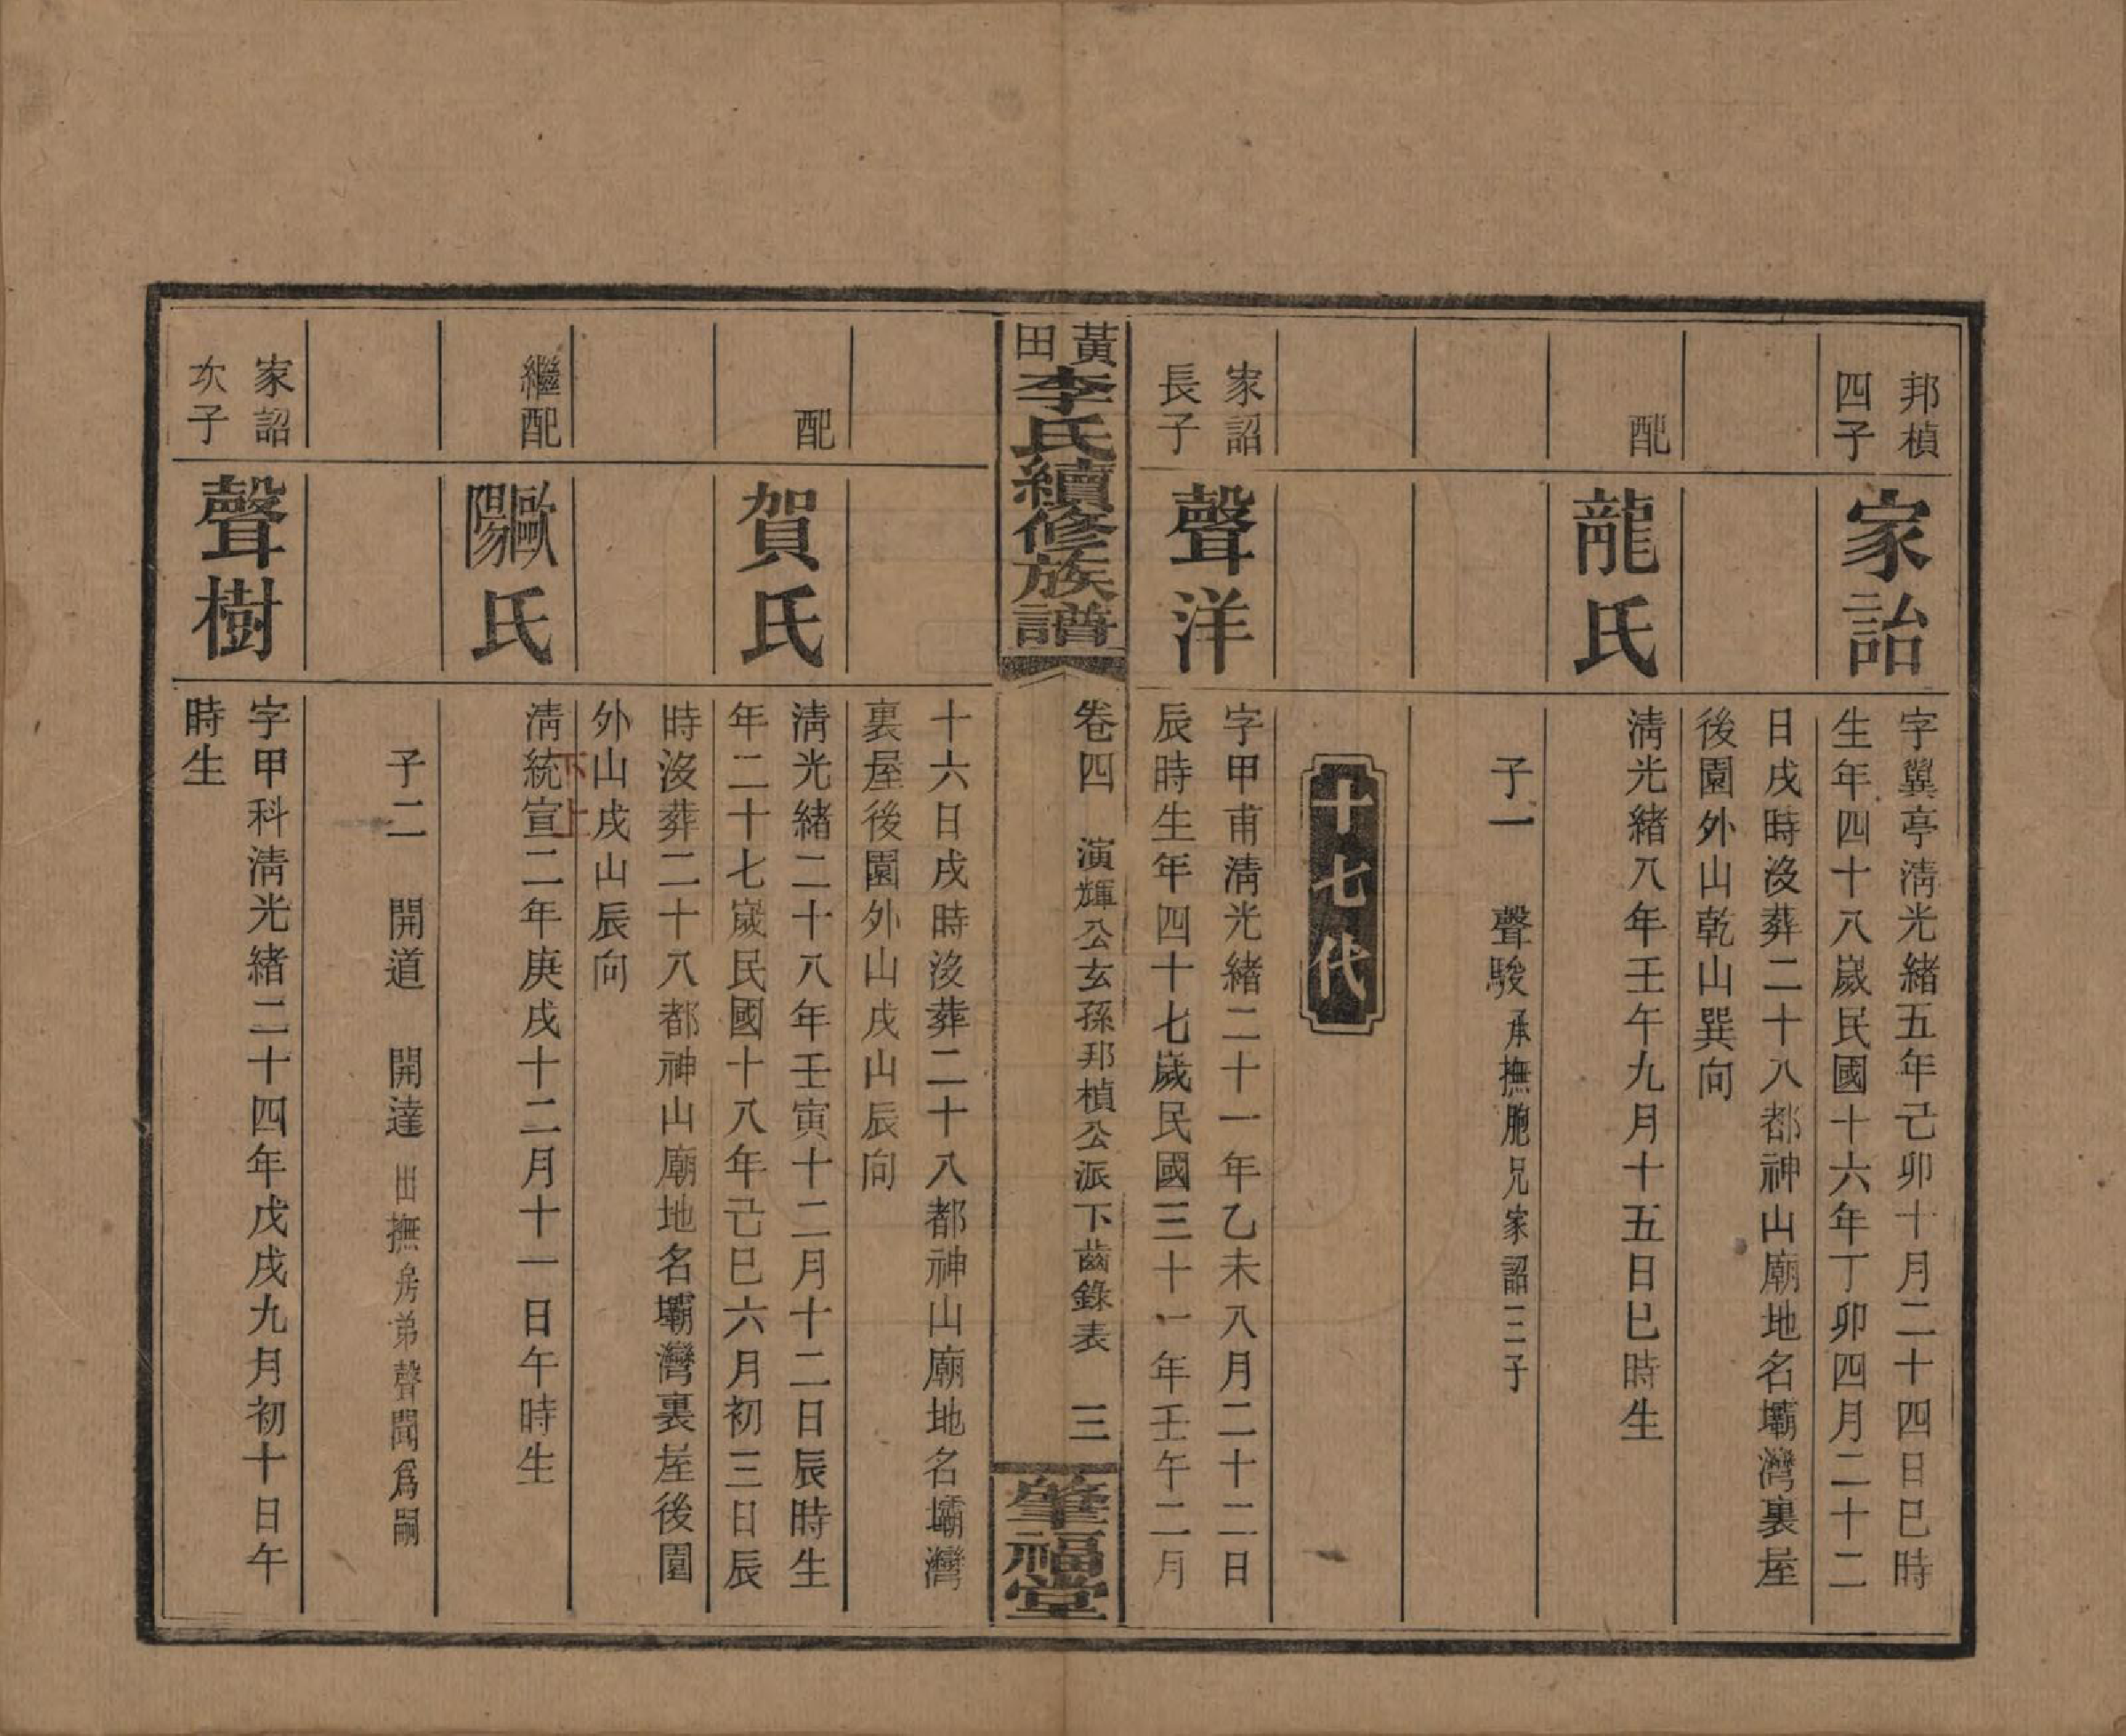 邦楨
四子
家詒
字翼亭淸光緒五年己卯十月二十四日巳時
生年四十八歲民國十六年丁卯四月二十二
日戌時沒葬二十八都神山廟地名壩灣裏屋
後園外山乾山巽向
配
龍氏
淸光緒八年壬午九月十五日巳時生
子一　聲駿承撫胞兄家詔三子
十七代
家詔
長子
聲洋
字甲甫淸光緒二十一年乙未八月二十二日
辰時生年四十七歲民國三十一年壬午二月
黃田李氏續修族譜
卷四　演輝公玄孫邦楨公派下齒錄表　三
肇福堂
十六日戌時沒葬二十八都神山廟地名壩灣
裏屋後園外山戌山辰向
配
賀氏
淸光緒二十八年壬寅十二月十二日辰時生
年二十七歲民國十八年己巳六月初三日辰
時沒葬二十八都神山廟地名壩灣裏屋後園
外山戌山辰向
繼配
歐陽氏
淸統宣二年庚戌十二月十一日午時生
下上
子二　開道　開達出撫房弟聲聞爲嗣
家詔
次子
聲樹
字甲科淸光緒二十四年戊戌九月初十日午
時生